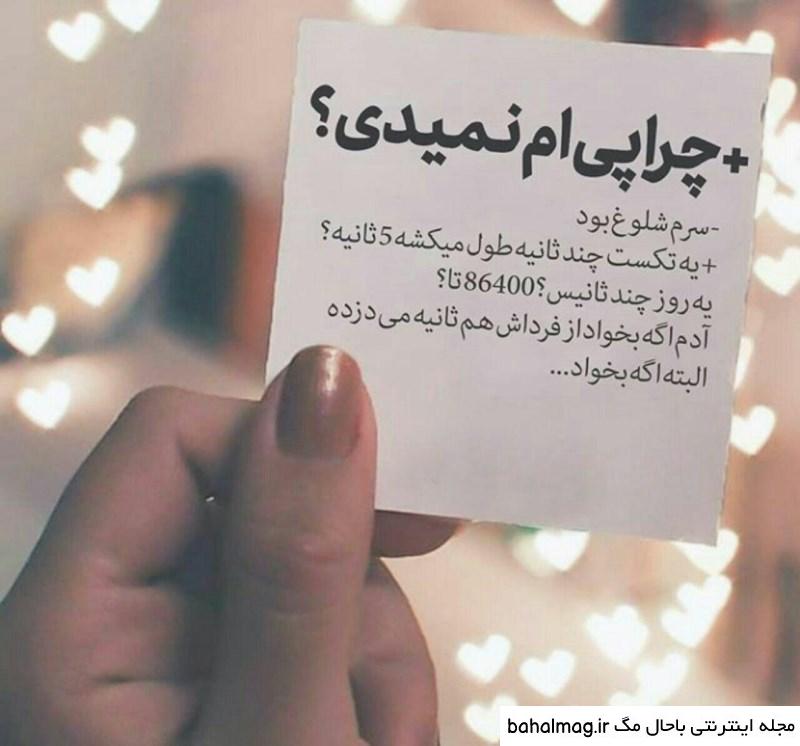 +چرا پی ام نمیدی؟
-سرم شلوغ بود
+یه تکست چند ثانیه طول میکشه 5 ثانیه؟
یه روز چند ثانیس؟ 86400 تا؟
آدم اگه بخواد از فرداش هم ثانیه می دزده
البته اگه بخواد...
مجله اینترنتی باحال مگ bahalmag.ir